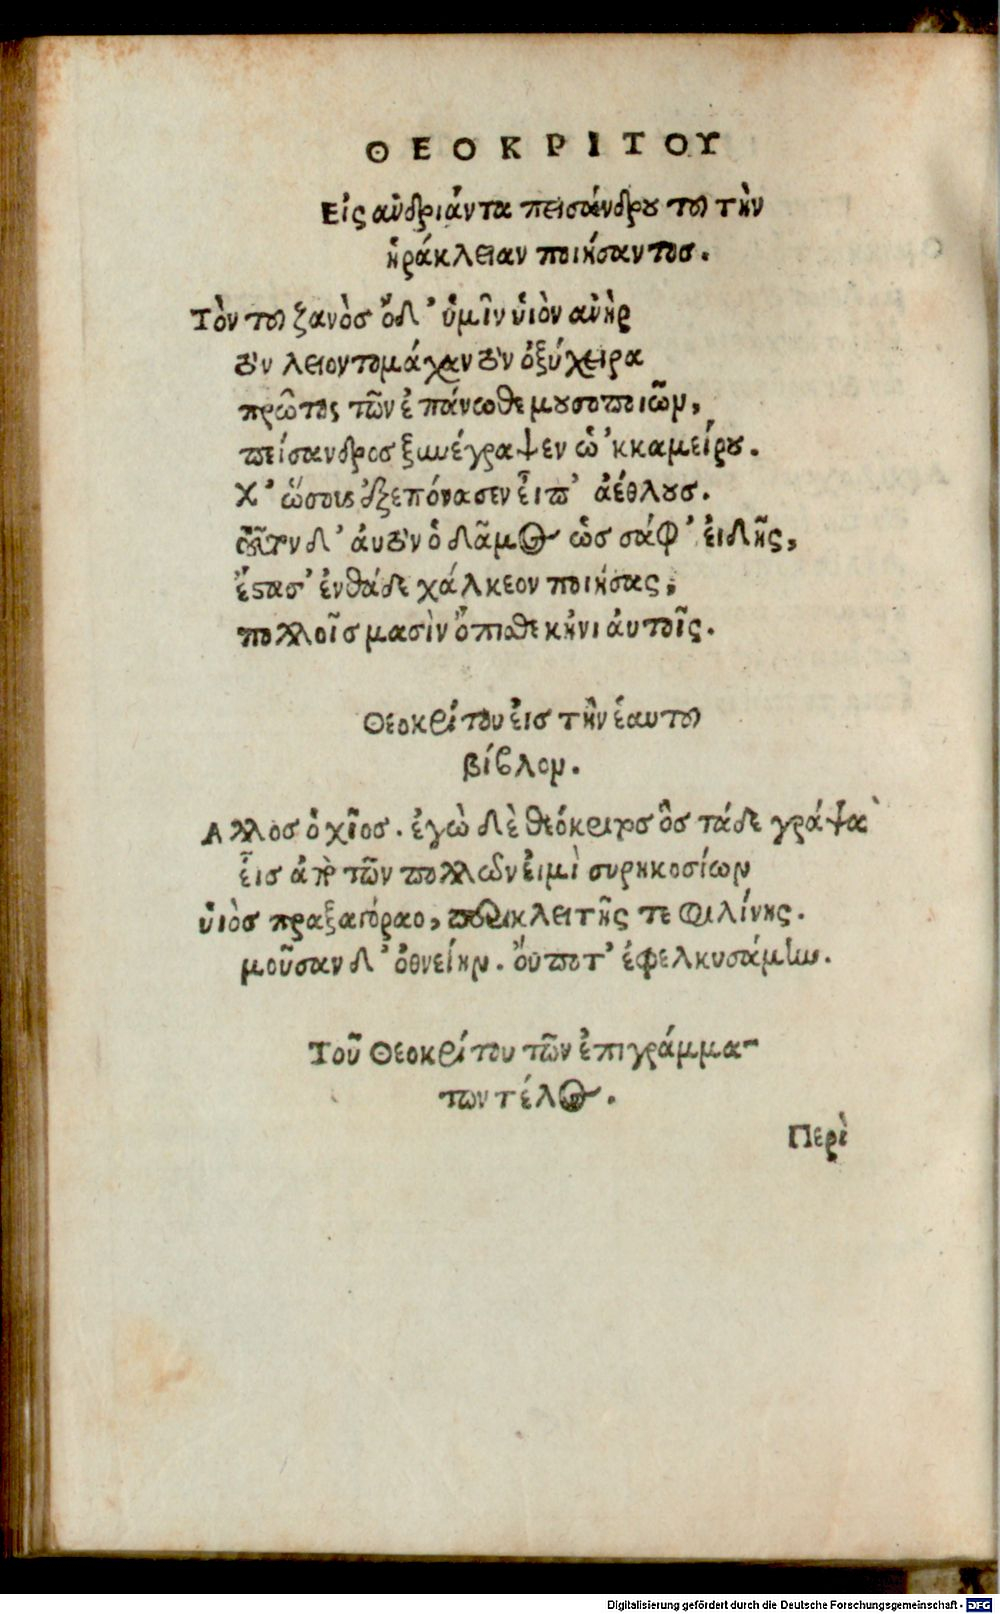 ΘΕΟΚΡΙΤΟΥ
Εἰς ἀνδριάντα πεισάνδρου τοῦ τὴν
ἡράκλειαν ποιήσαντος.
Τὸν τοῦ ζανὸς ὅδ' ὑμῖν ὑιὸν ἀνὴρ
τὸν λειοντομάχαν τὸν ὀξύχειρα
πρῶτος τῶν ἐπάνωθε μουσοποιῶν,
πείσανδρος ξυνέγραψεν ὡ 'κκαμείρου.
Χ' ὥσσους ἐξεπόνασεν εἶπ' ἀέθλους.
τοῦτον δ' ἀυτὸν ὁ δᾶμος ὡς σάφ' ἐιδῇς,
ἔστασ' ἐνθάδε χάλκεον ποιήσας,
πολλοῖς μασὶν ὄπισθε κἠνιἀυτοῖς.
Θεοκρίτου ἐις τὴν ἑαυτοῦ
βίβλον.
Αλλος ὁ χῖος. ἐγὼ δὲ θεόκριτος ὃς τάδε γράψα
εἷς ἀπὸ τῶν πολλῶν ἐιμὶ συρηκοσίων
ὑιὸς πραξαγόραο, περικλειτῆς τε φιλίνης.
μοῦσαν δ' ὀθνείην. ὄυποτ' ἐφελκυσάμην.
Τοῦ Θεοκρίτου τῶν ἐπιγράμμα-
των τέλος.
Περὶ
Digitalisierung gefördert durch die Deutsche Forschungsgemeinschaft - DFG